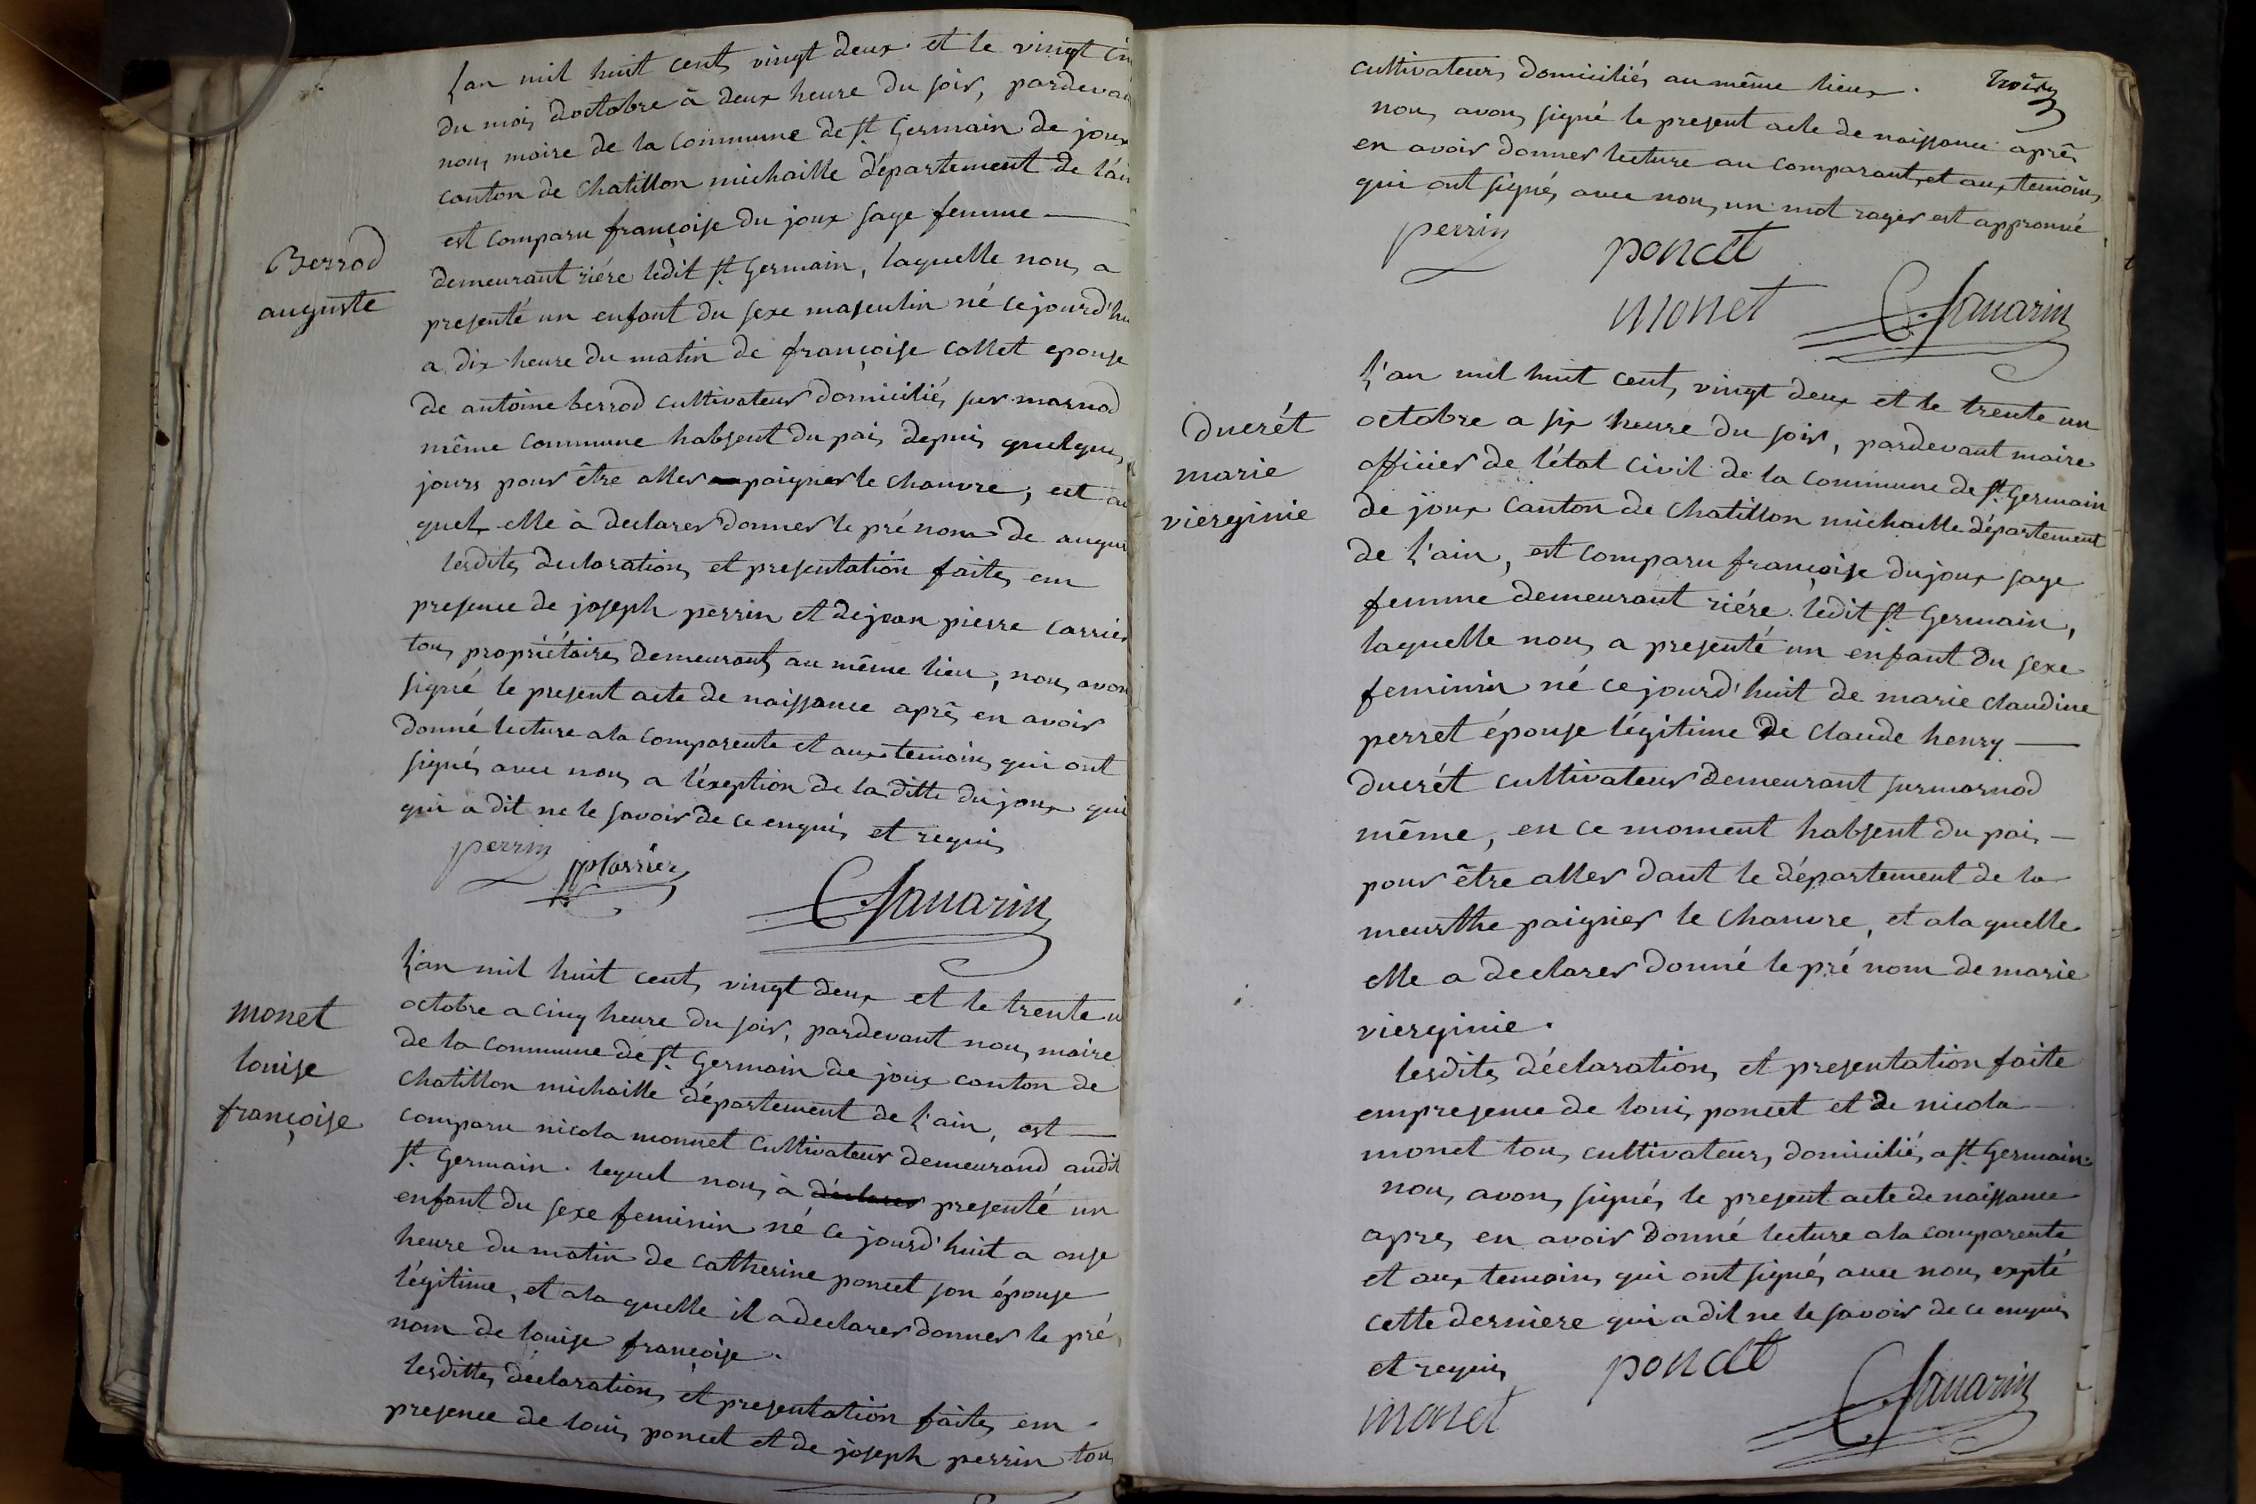 Berrod
auguste
L'an mil huit cent vingt deux et le vingt
du mois doctobre à deux heure du soir, pardevan
nous maire de la Commune de st Germain de joux
canton de Chatillon michaille département de l'ain
est comparu françoise du joux sage femme
demeurant riére ledit st Germain, laquelle nous a
presenté un enfant du sexe masculin né cejourd'hu
a dix heure du matin de françoise Collet epouse
de antoine berrod cultivateur domiciliés sur marnod
même Commune habsent du pais depuis quelques
jours pour être aller paigner le chanvre; est au
quel elle à declarer donner le pré nom de augu
lesdites declarations et presentation faites em
presence de joseph perrin et de jean pierre Carrier
tous propriétaires demeurants au même lieu, nous avons
signé le present acte de naissance aprês en avoir
donné lecture a la comparente et aux temoins qui ont
signés avec nous a l'éxeption de la ditte du joux qui
qui a dit ne le savoir de ce enquis et requis
perrin jpCarrier
CSavarin
monet
louise
françoise
L'an mil huit cent vingt deux et le trente u
octobre a cinq heure du soir, pardevant nous maire
de la Commune de st Germain de joux canton de
Chatillon michaille département de l'ain, est
comparu nicola monnet Cultivateur demeurand audit
st Germain. lequel nous à declarer presenté un
enfant du sexe feminin né ce jourd'huit a onse
heure du matin de Catherine poncet son épouse
légitime, et a la quelle il a declarer donner le pré
nom de louise françoise.
lesdittes déclarations et presentation faites em
presence de louis poncet et de joseph perrin tous
cultivateurs domiciliés au même lieux.
nous avons signé le present acte de naissance aprês
en avoir donner lecture au comparant, et aux temoins
qui ont signés avec nous, un mot rayer est approuvé
perrin poncet
monet CSavarin
ducrét
marie
vierginie
L'an mil huit cent vingt deux et le trente un
octobre a six heure du soir, pardevant maire
officier de l'état Civil de la Commune de st Germain
de joux Canton de Chatillon michaille département
de l'ain, est comparu françoise dujoux sage
femme demeurant riére ledit st Germain,
laquelle nous a presenté un enfant du sexe
feminin né ce jourd'huit de marie claudine
perret épouse légitime de Claude henry
ducrét cultivateur demeurant surmarnod
même, en ce moment habsent du pais
pour être aller dant le département de la
meurthe paigner le chanvre, et a la quelle
elle a declarer donné le pré nom de marie
vierginie.
lesdites déclarations et presentation faite
empresence de louis poncet et de nicola
monet tous cultivateurs domiciliés a st Germain.
nous avons signés le present acte de naissance
apres en avoir donné lecture a la comparente
et aux temoins qui ont signés avec nous expté
cette derniere qui a dit ne le savoir de ce enquis
et requis poncet
monet CSavarin